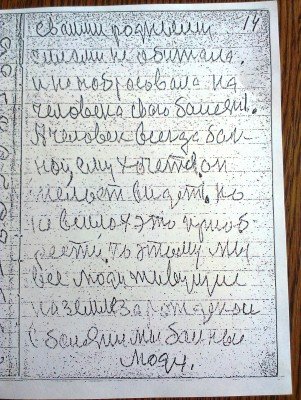 14
своими родными
силами не обитала.
и не набросовала на
человека свою болезнь.
А человек всегда бол-
ной, ему хочется он
может видеть, но
не в силах это приоб-
рести. поэтому мы
все люди живущие
на земле зарожденные
с болезни мы больные
люди.